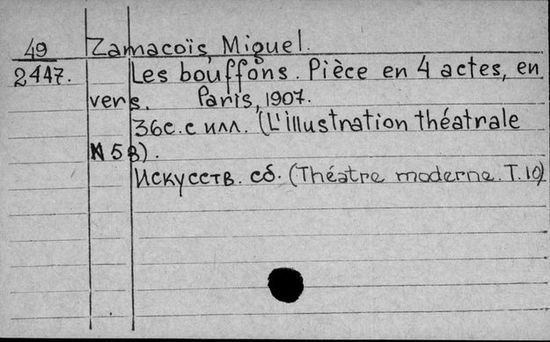 49 Zamacoïs, Miguel.
2447. Les bouffons. Pièce en 4 actes, en
vers. Paris, 1907.
36с. с илл. (L'illustration théatrale
N 58).
Искусств. сб. (Théatre moderne. T.10)